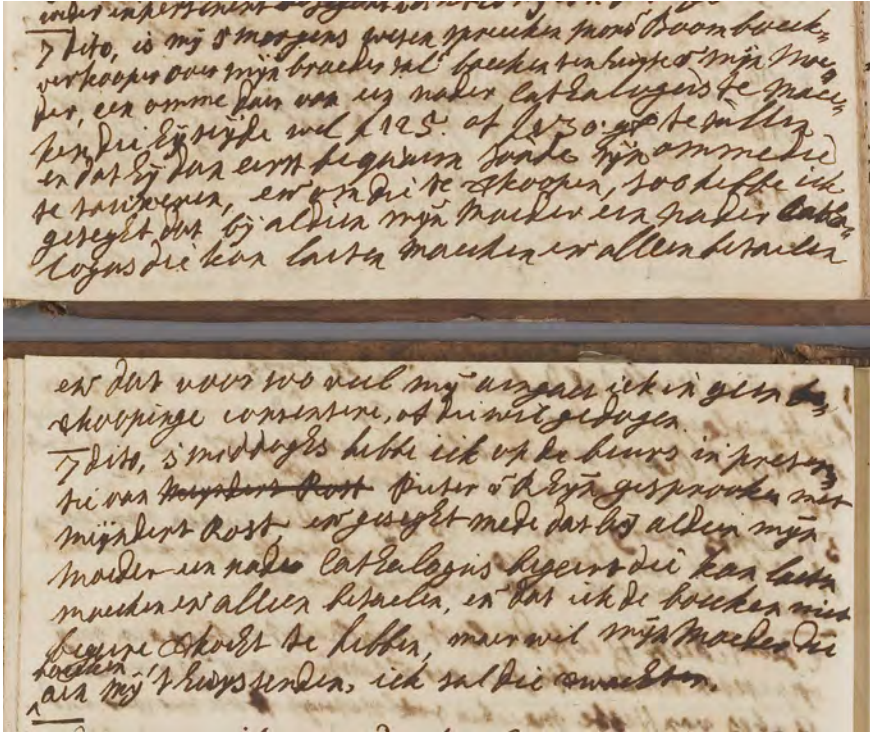 7 dito, is mij smorgens wesen spreecken monsr Boom boeck-
verkooper over mijn broeder sal: boecken ten huijse van mijn moe-
der, een omme daer van een nader Cathalogus te maec-
ken, die hij seijde wel f 125. of f 130. te sullen
en dat hij dan eerst bequaem soude sijn omme die
te taxeren, en om die te verkoopen, soo hebbe ick
geseght, dat bij aldien mijn moeder een nader Catha-
logus die kan laeten maecken en alleen betaelen
en dat voor soo veel mij aengaet ick in geen
verkoopinge consentere, of die wil gedogen.
7 dito, smiddaghs hebbe ick op de beurs in presen-
tie van Meijndert Rost Pieter v Rhijn gesproocken met
Mijndert Rost, en geseght mede dat bij aldien mijn
moeder een nader Cathalogus begeert die kan laeten
maecken en alleen betaelen, en dat ick de boecken niet
begeere verkocht te hebben, maer wil mijn moeder die
boecken
aen mij thuijs senden, ick sal die verwachten.